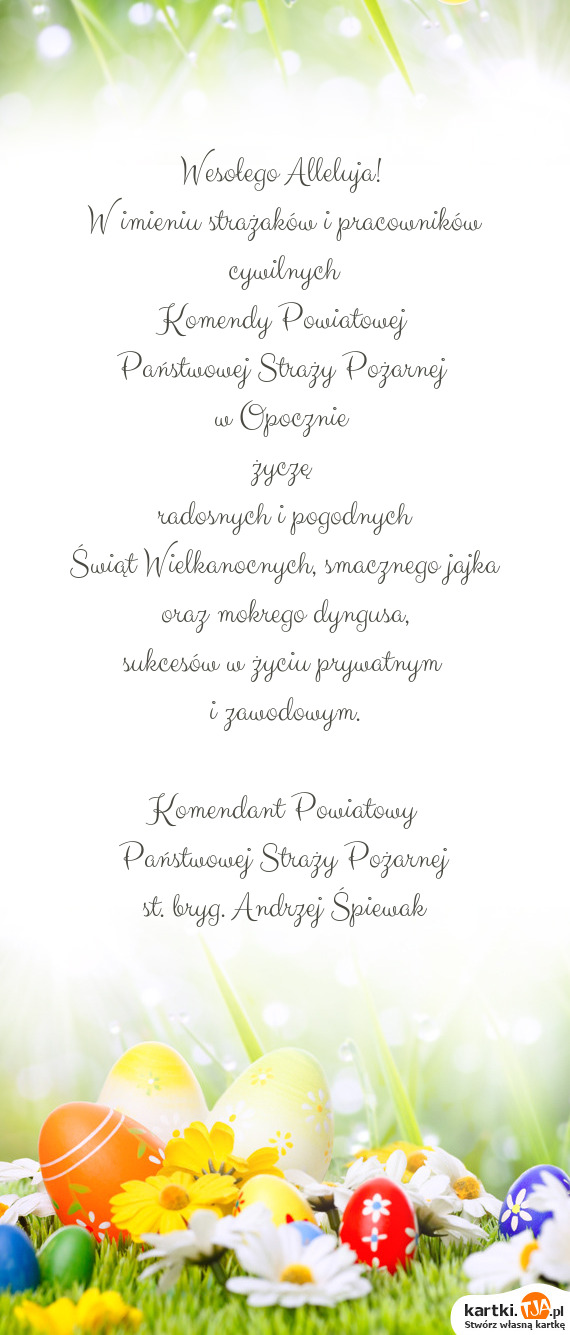 Wesołego Alleluja!
W imieniu strażaków i pracowników
cywilnych
Komendy Powiatowej
Państwowej Straży Pożarnej
w Opocznie
życzę
radosnych i pogodnych
Świąt Wielkanocnych, smacznego jajka
oraz mokrego dyngusa,
sukcesów w życiu prywatnym
i zawodowym.
Komendant Powiatowy
Państwowej Straży Pożarnej
st. bryg. Andrzej Śpiewak
kartki.TJA.pl
Stwórz własną kartkę